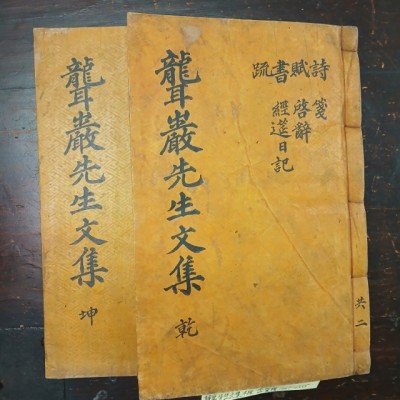 詩賦書疏
箋
啓辭
經筵日記
共二
聾巖先生文集 乾
聾巖先生文集 坤